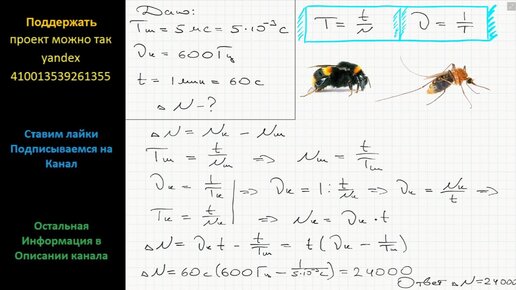 Поддержать
проект можно так
yandex
410013539261355
Ставим лайки
Подписываемся на
Канал
Остальная
Информация в
Описании канала
Дано:
Tш = 5 мс = 5·10⁻³ с
νк = 600 Гц
t = 1 мин = 60 с
ΔN - ?
T = t/N
ν = 1/T
ΔN = Nк - Nш
Tш = t/Nш => Nш = t/Tш
νк = 1/Tк => νк = 1 : t/Nк => νк = Nк/t =>
Tк = t/Nк => Nк = νк · t
ΔN = νк t - t/Tш = t(νк - 1/Tш)
ΔN = 60 с (600 Гц - 1/5·10⁻³ с) = 24000
Ответ ΔN = 24000